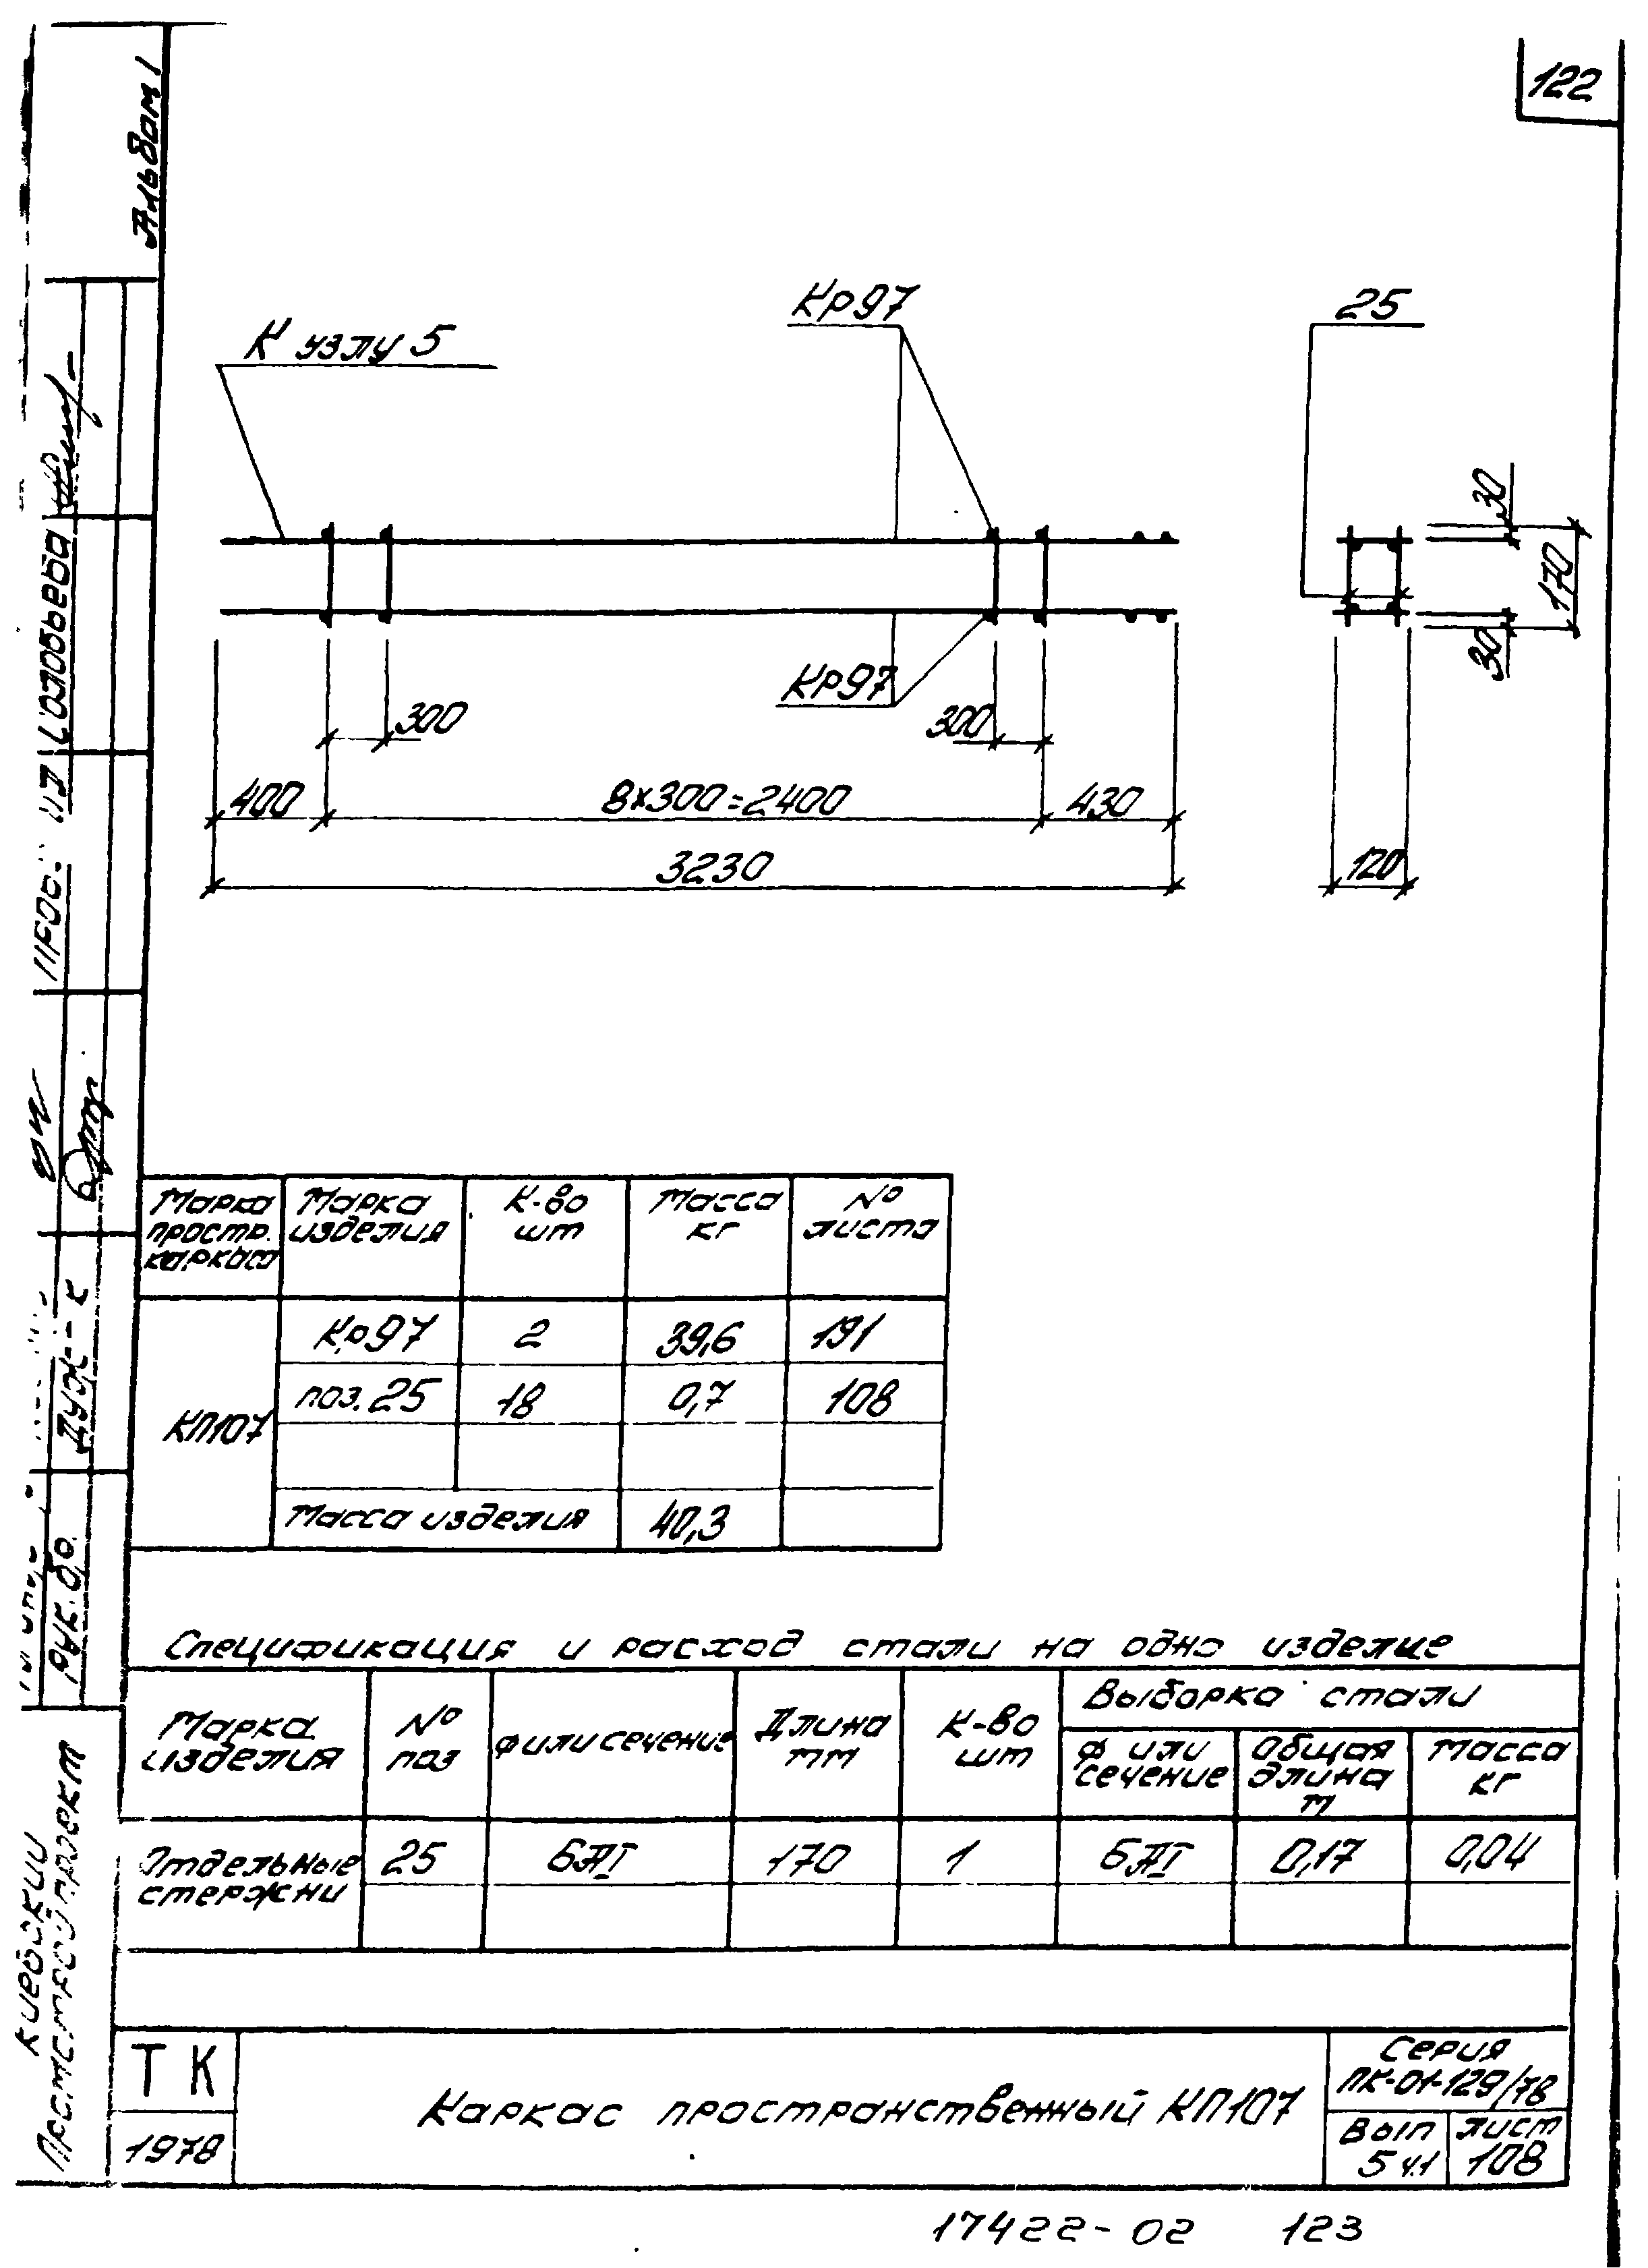 122
Альбом 1
К узлу 5
Кр97
25
30
170
30
Кр97
300
300
400
8×300=2400
430
3230
120
Марка простр. каркаса
Марка изделия
К-во шт
Масса кг
№ листа
КП107
Кр97 2 39,6 191
поз.25 18 0,7 108
Масса изделия 40,3
Спецификация и расход стали на одно изделие
Марка изделия
№ поз
Ф или сечение
Длина мм
К-во шт
Выборка стали
Ф или сечение
Общая длина м
Масса кг
Отдельные стержни
25 6АI 170 1 6АI 0,17 0,04
ТК
1978
Каркас пространственный КП107
Серия
ПК-01-129/78
Вып
5 ч.1
лист
108
17422-02 123
Соловьева
Киевский